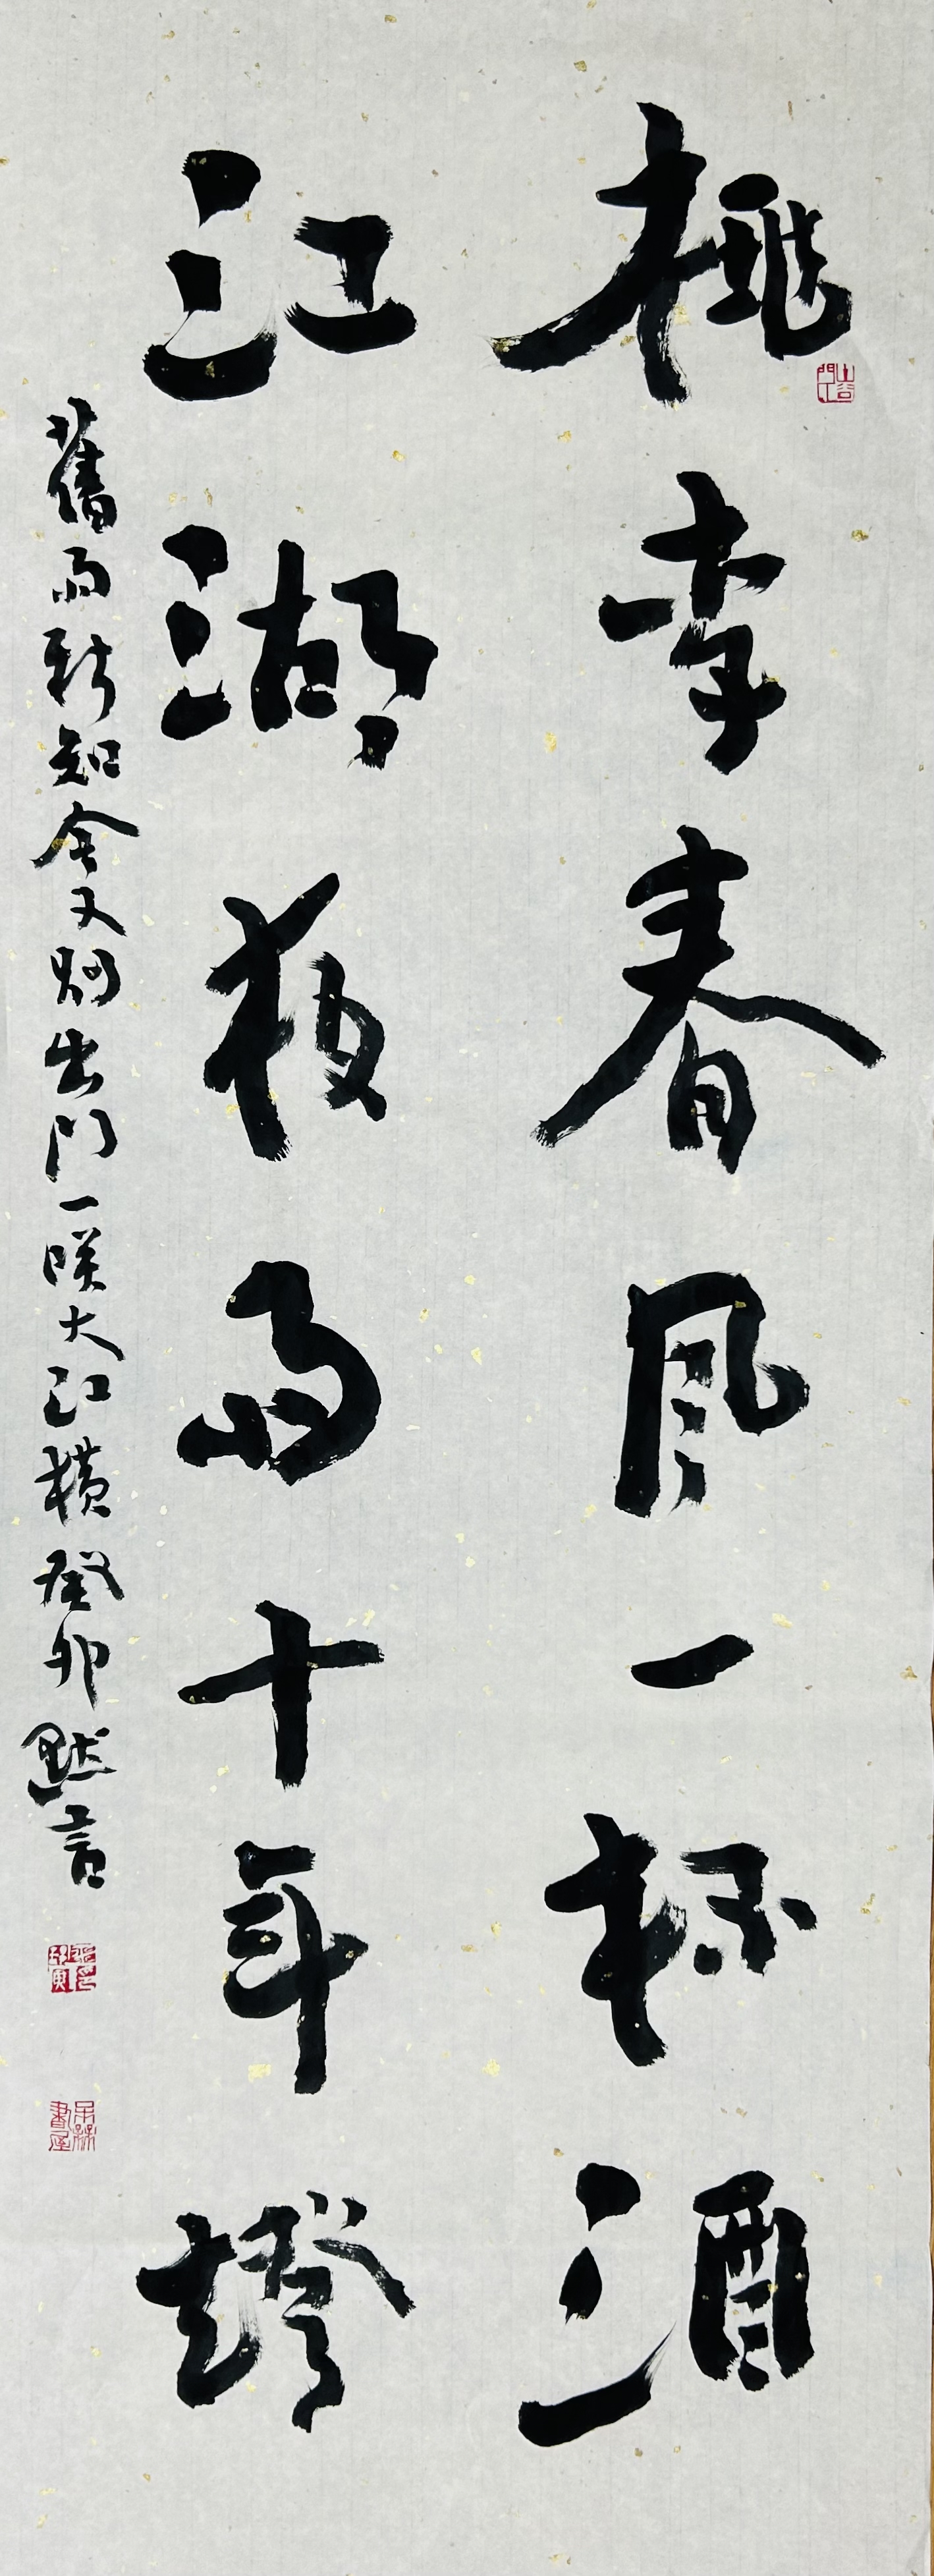 桃李春風一杯酒
江湖夜雨十年燈
舊雨新知今又別出門一笑大江橫癸卯默言
山谷門下